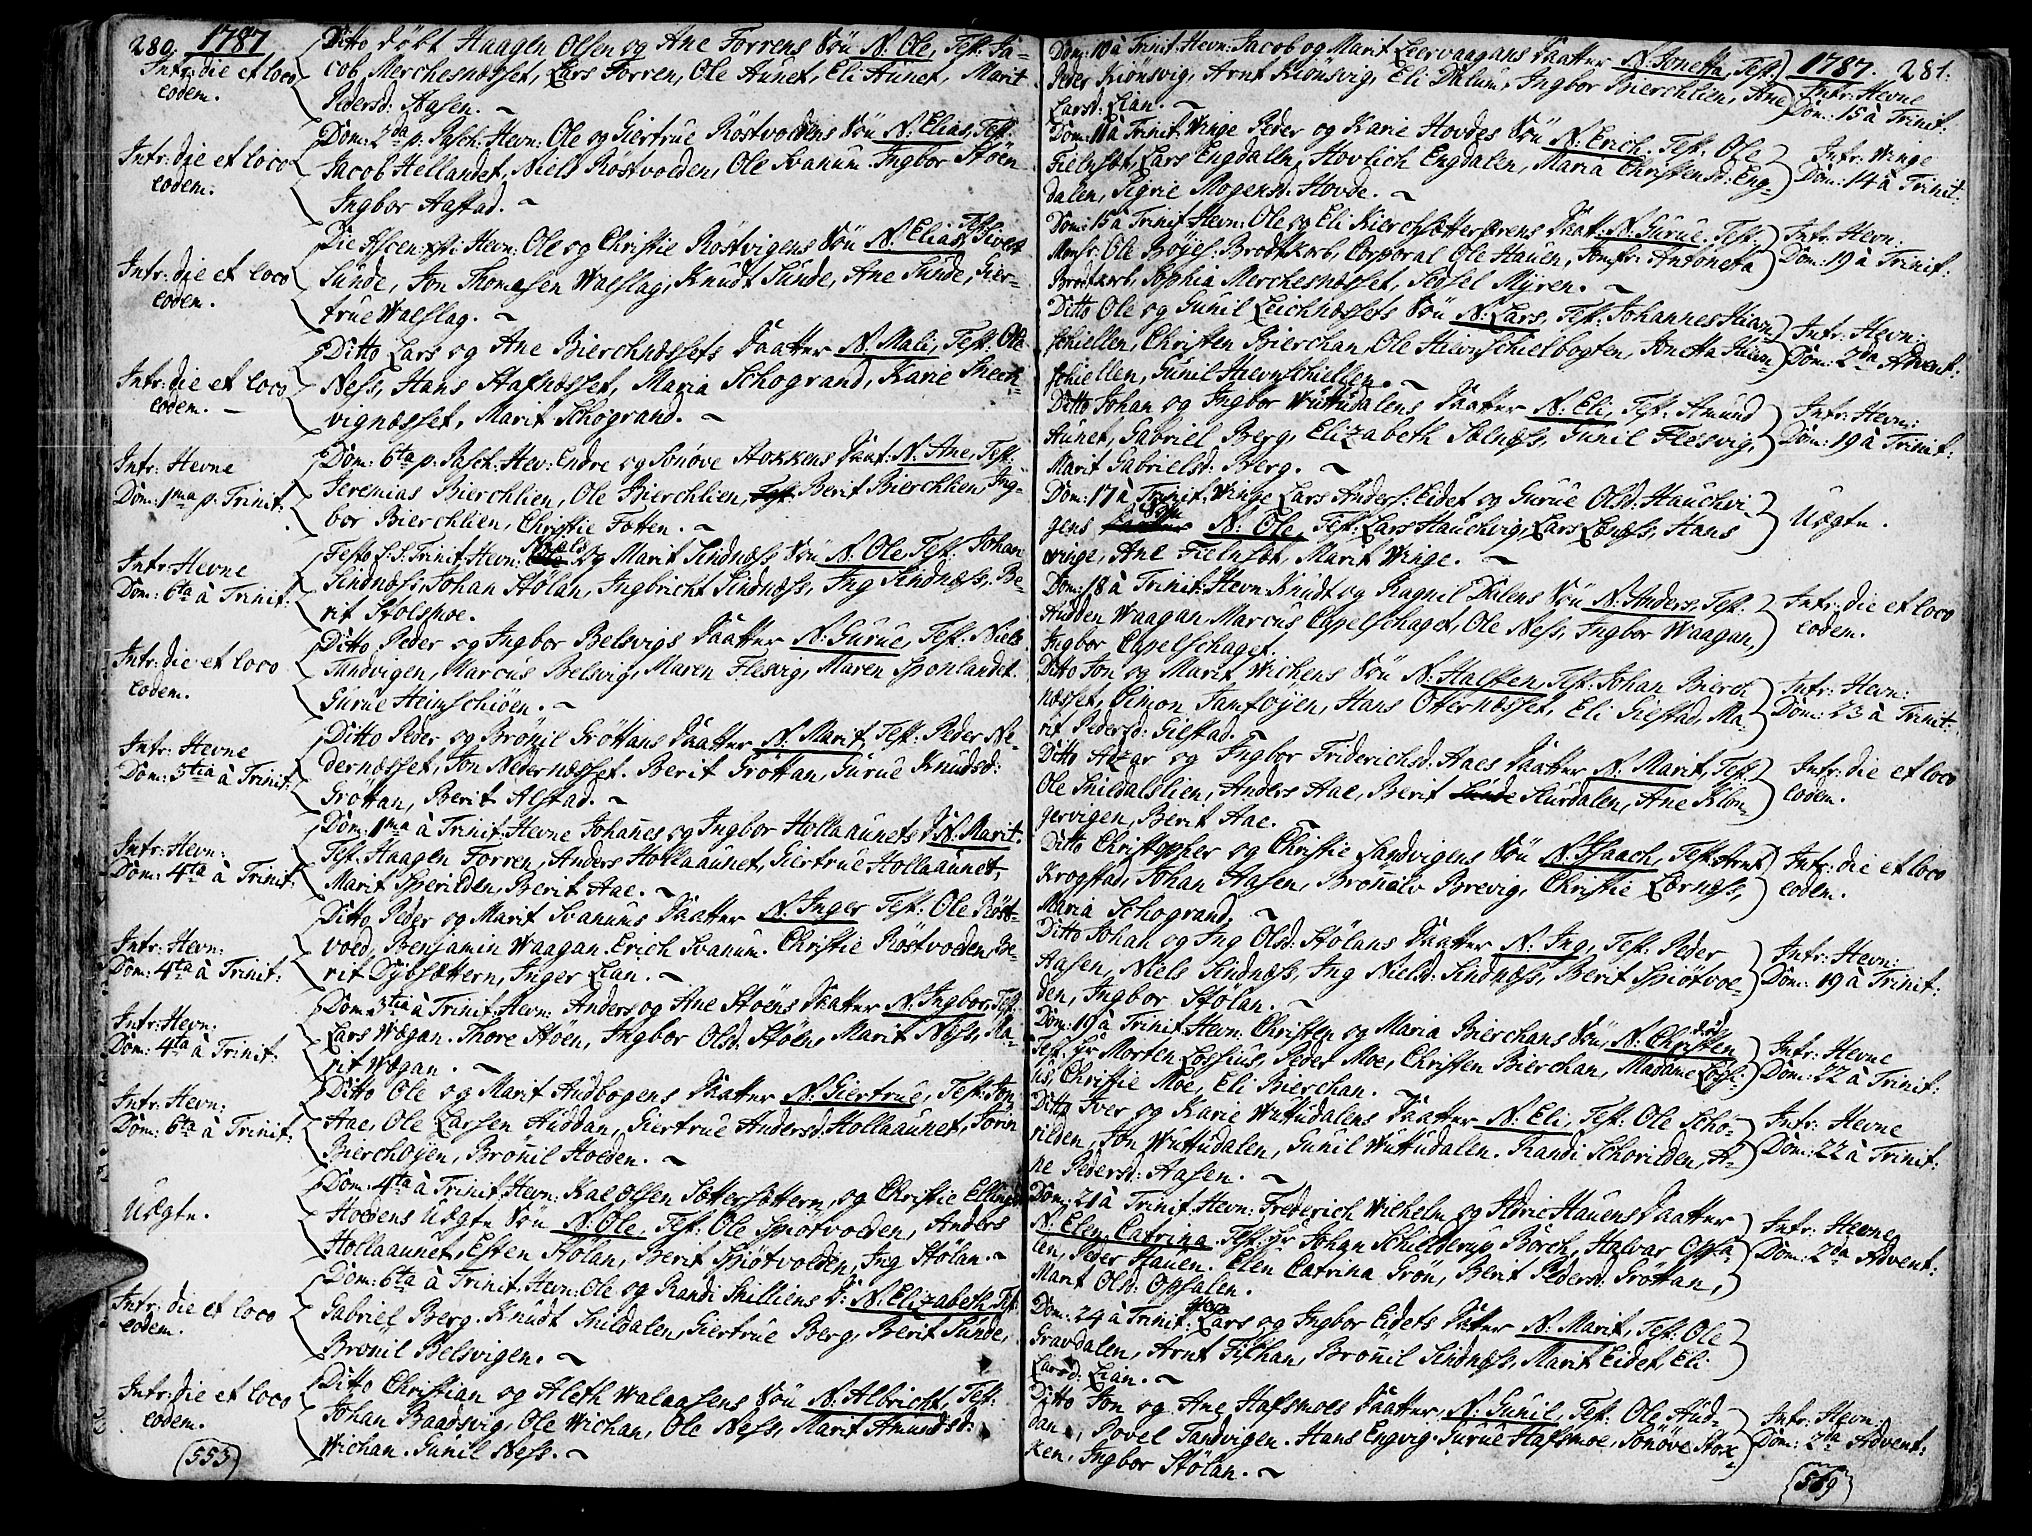 280. 1787.
Intr: die et loco
eodem.
Ditto døbt Haagen Olsen og Ane Forrens Søn N. Ole, Test: Ja-
cob Merchesnæsset, Lars Forren, Ole Aunet, Eli Aunet, Marit
Pedersd: Aasen. ~
Intr: die et loco
eodem.
Dom: 2da p. Pasch: Hevn: Ole og Giertrue Röstvoldens Søn N. Elias, Test:
Jacob Hellandet, Niels Röstvolden, Ole Svanum, Ingbor Stöen
Ingbor Aastad. ~
Intr: die et loco
eodem.
Die Ascen: xsti: Hevn: Ole og Christie Röstvigens Søn N. Elias, Test: Sivert
Sunde, Jon Thomesen Walslag, Knudt Sunde, Ane Sunde, Gier-
true Walslag. ~
Intr: die et loco
eodem. -
Ditto Lars og Ane Bierchnæssets Daatter N. Mali, Test: Ole
Ness, Hans Stafnæsset, Maria Schogrand, Karie Snech-
vignæsset, Marit Schogrand. ~
Intr: Hevne
Dom: 1ma p. Trinit:
Dom: 6ta p. Pasch: Hev: Endre og Sonöve Stokkens Daat: N. Ane, Test:
Jeremias Bierchlien, Ole Bierchlien, Berit Bierchlien, Ing-
bor Bierchlien, Christie Fotten. ~
Intr: Hevne
Dom: 6ta à Trinit:
Festo S.S. Trinit. Hevn: Niels og Marit Sindnæss Søn N. Ole, Test: Johan
Sindnæss, Johan Stölan, Ingbricht Sindnæss, Ing Sindnæss, Be-
rit Stolsmoe.
Intr: die et loco
eodem.
Ditto Peder og Ingbor Belsvigs Daatter N. Gurue, Test: Niels
Sundvigen, Marcus Belsvig, Maren Flesvig, Maren Sponlandet.
Gurue Heimschiöen. ~
Intr: Hevne
Dom: 3tia à Trinit:
Ditto Peder og Brönil Gröttans Daatter N. Marit, Test: Peder Ne-
dernæsset, Jon Nedernæsset. Berit Gröttan, Gurue Knudsd:
Gröttan, Berit Alstad. ~
Intr: Hevn:
Dom: 4ta à Trinit:
Dom: 1ma à Trinit: Hevne Johanes og Ingbor Hollaaunets D. N. Marit.
Test: Haagen Forren, Anders Hollaaunet, Giertrue Hollaaunet,
Marit Sperilden, Berit Aae. ~
Intr: Hevn:
Dom: 4ta à Trinit:
Ditto Peder og Marit Svanums Daatter N. Inger Test: Ole Röst-
vold, Benjamin Waagan. Erich Svanum. Christie Röstvolden, Be-
rit Dybsættern, Inger Lian. ~
Intr: Hevn:
Dom: 4ta à Trinit:
Dom: 3tia à Trinit: Hevn: Anders og Ane Stöens Daatter N. Ingbor, Test:
Lars Wægan. Thore Stöen, Ingbor Olsd: Stöen, Marit Ness, Ma-
rit Wægan. ~
Intr: Hevn:
Dom: 6ta à Trinit:
Ditto Ole og Marit Audbogens Daatter N. Giertrue, Test: Jon
Aae, Ole Larsen Auddan, Giertrue Andersd: Hollaaunet, Jorin
Bierchöyen, Brönil Holden. ~
Uægte.
Dom: 4ta à Trinit: Hevn: Kae Olsen Sættersættern, og Christie Ellingsd:
Holdens Uægte Søn N. Ole, Test: Ole Spiotvolden, Anders
Hollaaunet, Esten Stölan, Berit Spiötvolden, Ing Stölan. ~
Intr: die et loco
eodem.
Dom: 6ta à Trinit: Hevn: Ole og Randi Skilliens D: N. Elizabeth, Test:
Gabriel Berg. Knudt Snildalen, Giertrue Berg, Berit Sunde,
Brönil Belsvigen. ~
Intr: die et loco
eodem.
Ditto Christian og Aleth Walaasens Søn N. Albricht, Test:
Johan Baadsvig, Ole Wichan, Ole Ness, Marit Amundsd:
Wichan. Gunil Ness. ~
(553)
1787. 281.
Dom: 10 à Trinit: Hevn: Jacob og Marit Leervaagans Daatter N. Jonetta, Test:
Peder Kiönsvig, Arnt Kiönsvig, Eli Dalum, Ingbor Bierchlien, Ane
Larsd: Lian. ~
Intr: Hevne
Dom: 15 à Trinit:
Dom: 11 à Trinit: Winge Peder og Karie Hovdes Søn N. Erich. Test: Ole
Fielnset, Lars Engdalen, Hovlich Engdalen, Maria Christensd: Eng-
dalen, Sigrie Mogensd: Hovde. ~
Intr: Winge
Dom: 14 à Trinit:
Dom: 15 à Trinit: Hevn: Ole og Eli Kierchsættersørens Daat: N. Gurue. Test:
Monsr: Ole Boyes: Brodtkorb, Corporal Ole Hauen, Jomfr: Antonetta
Brodtkorb, Sophia Merchesnæsset, Sedsel Myren. ~
Intr: Hevn:
Dom: 19 à Trinit:
Ditto Ole og Gunil Leichnæssets Søn N. Lars, Test: Johannes Hævn-
schiellen, Christen Bierchan, Ole Hævnschielbogten, Jonetta Hævn-
schiellen, Gunil Hævnschiellen. ~
Intr: Hevn:
Dom: 2da Advent:
Ditto Johan og Ingbor Wuttudalens Daatter N. Eli, Test: Amund
Aunet, Gabriel Berg, Elizabeth Stolnæss, Gunil Flesvig,
Marit Gabrielsd: Berg. ~
Intr: Hevn:
Dom: 19 à Trinit:
Dom: 17 à Trinit: Winge Lars Anders: Eidet og Gurue Olsd: Hauchvi-
gens Søn N. Ole, Test: Lars Hauchvig, Lars Lenæss, Hans
Winge, Ane Fielnset, Marit Winge. ~
Uægte.
Dom: 18 à Trinit: Hevn: Knudt og Ragnil Dalens Søn N. Anders, Test:
Audden Waagan, Marcus Capelschaget, Ole Ness, Ingbor Waagan,
Ingbor Capelschaget.
Intr: die et loco
eodem.
Ditto Jon og Marit Wichens Søn N. Halsten, Test: Johan Bierch-
næsset, Simon Tamsöyen, Hans Otternæsset, Eli Gilstad, Ma-
rit Pedersd: Gilstad. ~
Intr: Hevn:
Dom: 23 à Trinit:
Ditto Adzar og Ingbor Friderichsd: Aaes Daatter N. Marit, Test:
Ole Snildalslien, Anders Aae, Berit Slurdalen, Ane Klon-
gervigen, Berit Aae. ~
Intr: die et loco
eodem.
Ditto Christopher og Christie Sandvigens Søn N. Isaach, Test: Arnt
Krogstad, Johan Aasen, Brönalv Brevig, Christie Lernæss,
Maria Schogrand. ~
Intr: die et loco
eodem.
Ditto Johan og Ing Olsd: Stölans Daatter N. Ing, Test: Peder
Aasen, Niels Sindnæss, Ing Nielsd: Sindnæss, Berit Spiötvol-
den, Ingbor Stölan. ~
Intr: Hevn:
Dom: 19 à Trinit:
Dom: 19 à Trinit: Hevn: Christen og Maria Bierchans Søn N. Christen
Test: Hr Morten Lossius, Peder Moe, Christen Bierchan, Madame Lossi-
us, Christie Moe, Eli Bierchan. ~
Intr: Hevne
Dom: 22 à Trinit:
Ditto Iver og Karie Wuttudalens Daatter N. Eli, Test: Ole Scho-
rilden, Jon Wuttudalen, Gunil Wuttudalen. Randi Schorilden, A-
ne Pedersd: Aasen. ~
Intr: Hevne
Dom: 22 à Trinit:
Dom: 21 à Trinit: Hevn: Frederich Wilhelm og Hauens Daatter
N. Elen Catrina Test: Hr Johan Schielderup Borch, Halvar Opsa-
len, Peder Hauen. Elen Catrina Grön, Berit Pedersd: Gröttan,
Marit Olsd: Opsalen.
Intr: Hevne
Dom: 2da Advent:
Dom: 24 à Trinit: Lars og Ingbor Eidets Datter N. Marit, Test: Ole
Gravdalen, Arnt Fischan, Brönil Sindnæss, Marit Eidet, Eli
Larsd: Lian. ~
Ditto Jon og Ane Hafsmoes Daatter, N. Gunil, Test: Ole Aud-
dan, Povel Sandvigen. Hans Engvig. Gurue Hafsmoe, Sonöve Stok-
ken, Ingbor Stölan. ~
Intr: Hevn:
Dom: 2da Advent:
(569)